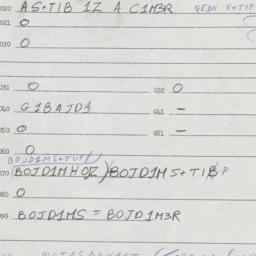 020 A S+TIB 1Z A C1M3R GEDN S+TIP
021 O
030 O
031 O 032 O
040 G1BAJD1
041 —
050 O 051 —
060 O
BOJD1MS+TUP//
070 BOJD1MHOJZ) BOJD1M S+TIB P
080 O
090 BOJD1MS = BOJD1M3R